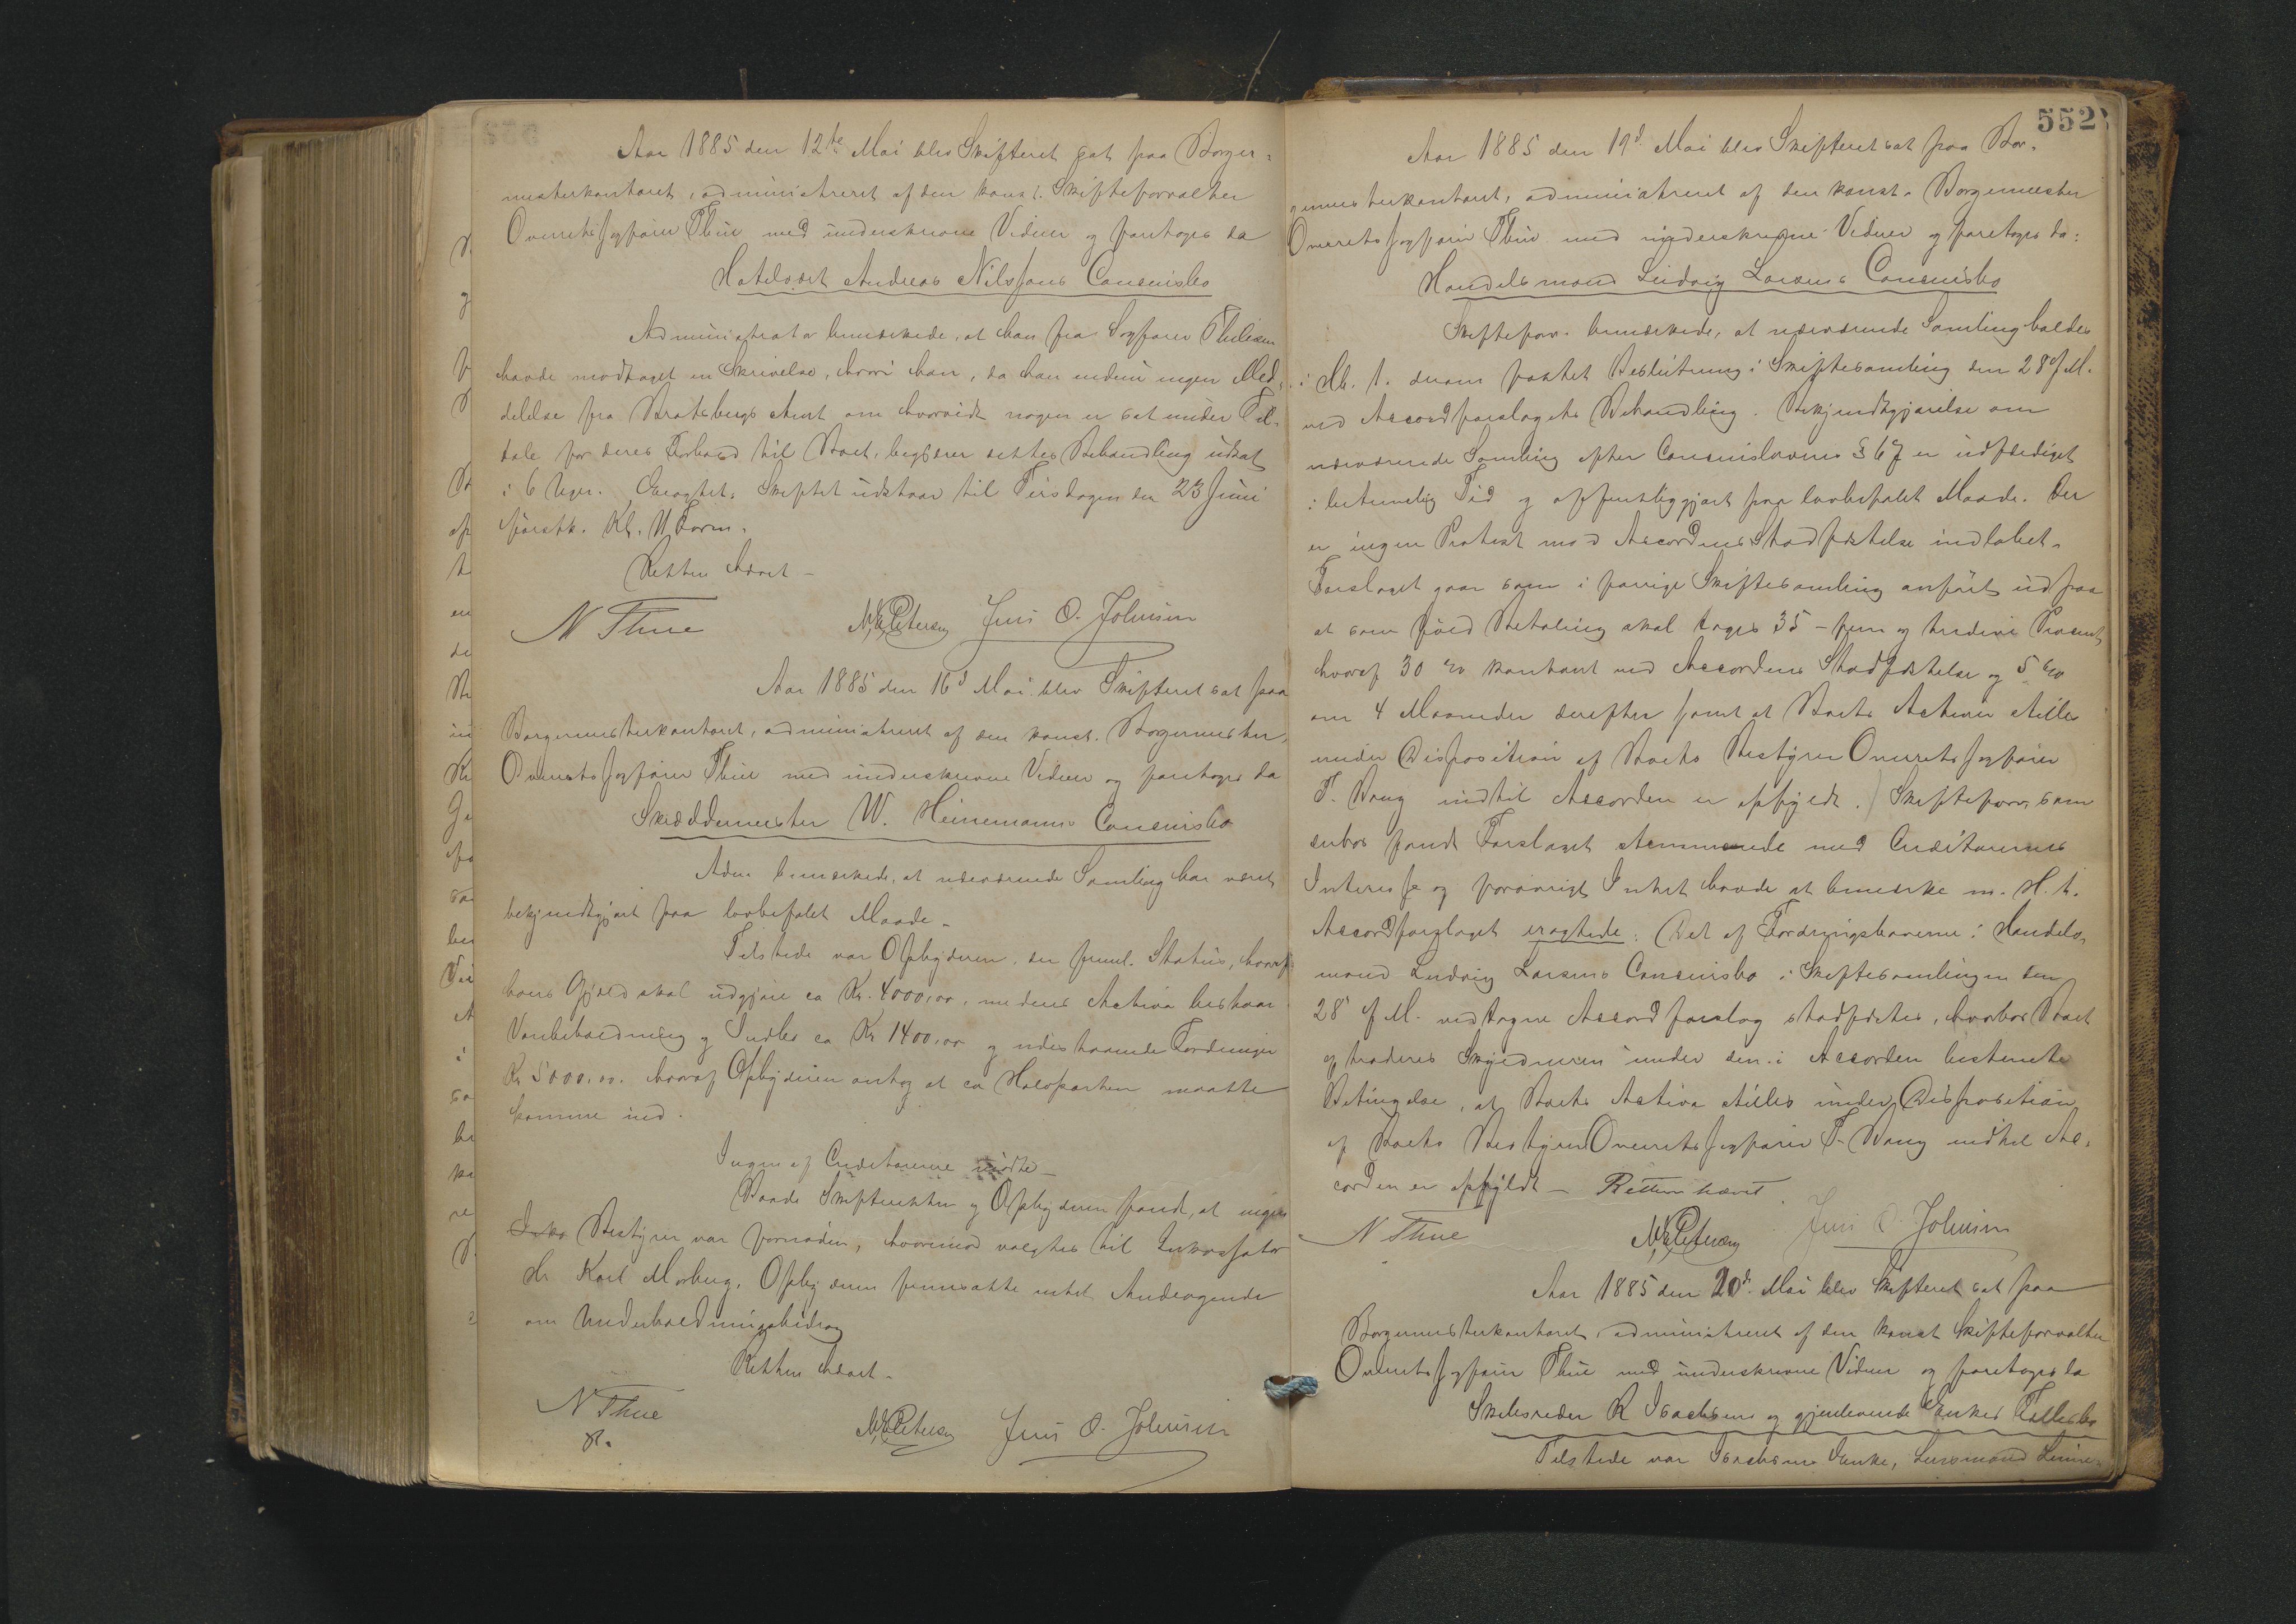 Aar 1885 den 12te Mai blev Skifteret sat paa Borger-
mesterkontoret, administreret af den konst. Skifteforvalter
Overretssagfører Thue med underskrevne Vidner og foretoges da
Hotelvert Andreas Nilssons Concursbo
Administrator bemærkede, at han fra Sagfører
havde modtaget en Skrivelse, hvori han, da han endnu ingen Med-
delelse fra Bratsbergs Amt om hvorvidt nogen er sat under Til-
tale for deres Forhold til Boet, begjærer dettes Behandling udsat
i 6 Uger. Eragtet: Skiftet udstaar til Tirsdagen den 23 Juni
førstk. Kl. 11 Form.
Retten hævet -
N Thue
N. E. Petersen Jens O. Johnsen
Aar 1885 den 16d Mai blev Skifteret sat paa
Borgermesterkontoret, administreret af den konst. Borgermester,
Overretssagfører Thue med underskrevne Vidner og foretoges da
Skræddermester W. Heinemanns Concursbo
Adm. bemærkede, at nærværende Samling har været
bekjendtgjort paa lovbefalet Maade.
Tilstede var Opbyderen, der freml. Status, hvoraf
hans Gjæld skal udgjøre ca Kr. 4000,00, medens Activa bestaar
Varebeholdning og Indbo ca Kr 1400,00 og udestaaende Fordringer
Kr 5000,00. hvoraf Opbyderen antog at ca Halvparten maatte
komme ind.
Ingen af Creditorerne mødte -
Baade Skifteretten og Opbyderen fandt, at ingen
Bestyrer var fornøden, hvorimod valgtes til Incassator
Hr Karl Moberg. Opbyderen fremsatte intet Andragende
om Underholdningsbidrag
Retten hævet -
N Thue
N. E. Petersen Jens O. Johnsen
552
Aar 1885 den 19d. Mai blev Skifteret sat paa Bor-
germesterkontoret, administreret af den konst. Borgermester
Overretssagfører Thue med underskrevne Vidner og foretoges da:
Handelsmand Ludvig Larsens Concursbo
Skifteforv. bemærkede, at nærværende Samling holdes
i H. t. derom fattet Beslutning i Skiftesamling den 28 f. M.
ved Accordforslagets Behandling. Bekjendtgjørelse om
nærværende Samling efter Concurslovens § 67 er udfærdiget
i betimelig Tid og offentliggjort paa lovbefalet Maade. Der
er ingen Protest mod Accordens Stadfæstelse indløbet.
Forslaget gaar som i forrige Skiftesamling anført ud paa
at som fuld Betaling skal tages 35 - fem og tredive Procent,
hvoraf 30 % kontant ved Accordens Stadfæstelse og 5 %
om 4 Maaneder derefter samt at Boets Activa stilles
under Disposition af Boets Bestyrer Overretssagfører
F. Bang indtil Accorden er opfyldt. Skifteforv., som
derhos fandt Forslaget stemmende med Creditorernes
Interesse og forøvrigt Intet havde at bemærke m. H. t.
Accordforslaget eragtede: Det af Fordringshaverne i Handels-
mand Ludvig Larsens Concursbo i Skiftesamlingen den
28' f. M. vedtagne Accordforslag stadfæstes, hvorhos Boet
extraderes Skyldneren under den i Accorden bestemte
Betingelse, at Boets Activa stilles under Disposition
af Boets Bestyrer Overretssagfører F. Bang indtil Ac-
corden er opfyldt - Retten hævet.
N Thue
N. E. Petersen Jens O. Johnsen
Aar 1885 den 20d. Mai blev Skifteret sat paa
Borgermesterkontoret, administreret af den konst Skifteforvalter
Overretssagfører Thue med underskrevne Vidner og foretoges da
Skibsreder R Isachsens og gjenlevende Enkes Fællesbo
Tilstede var Isachsens Enke, Lensmand